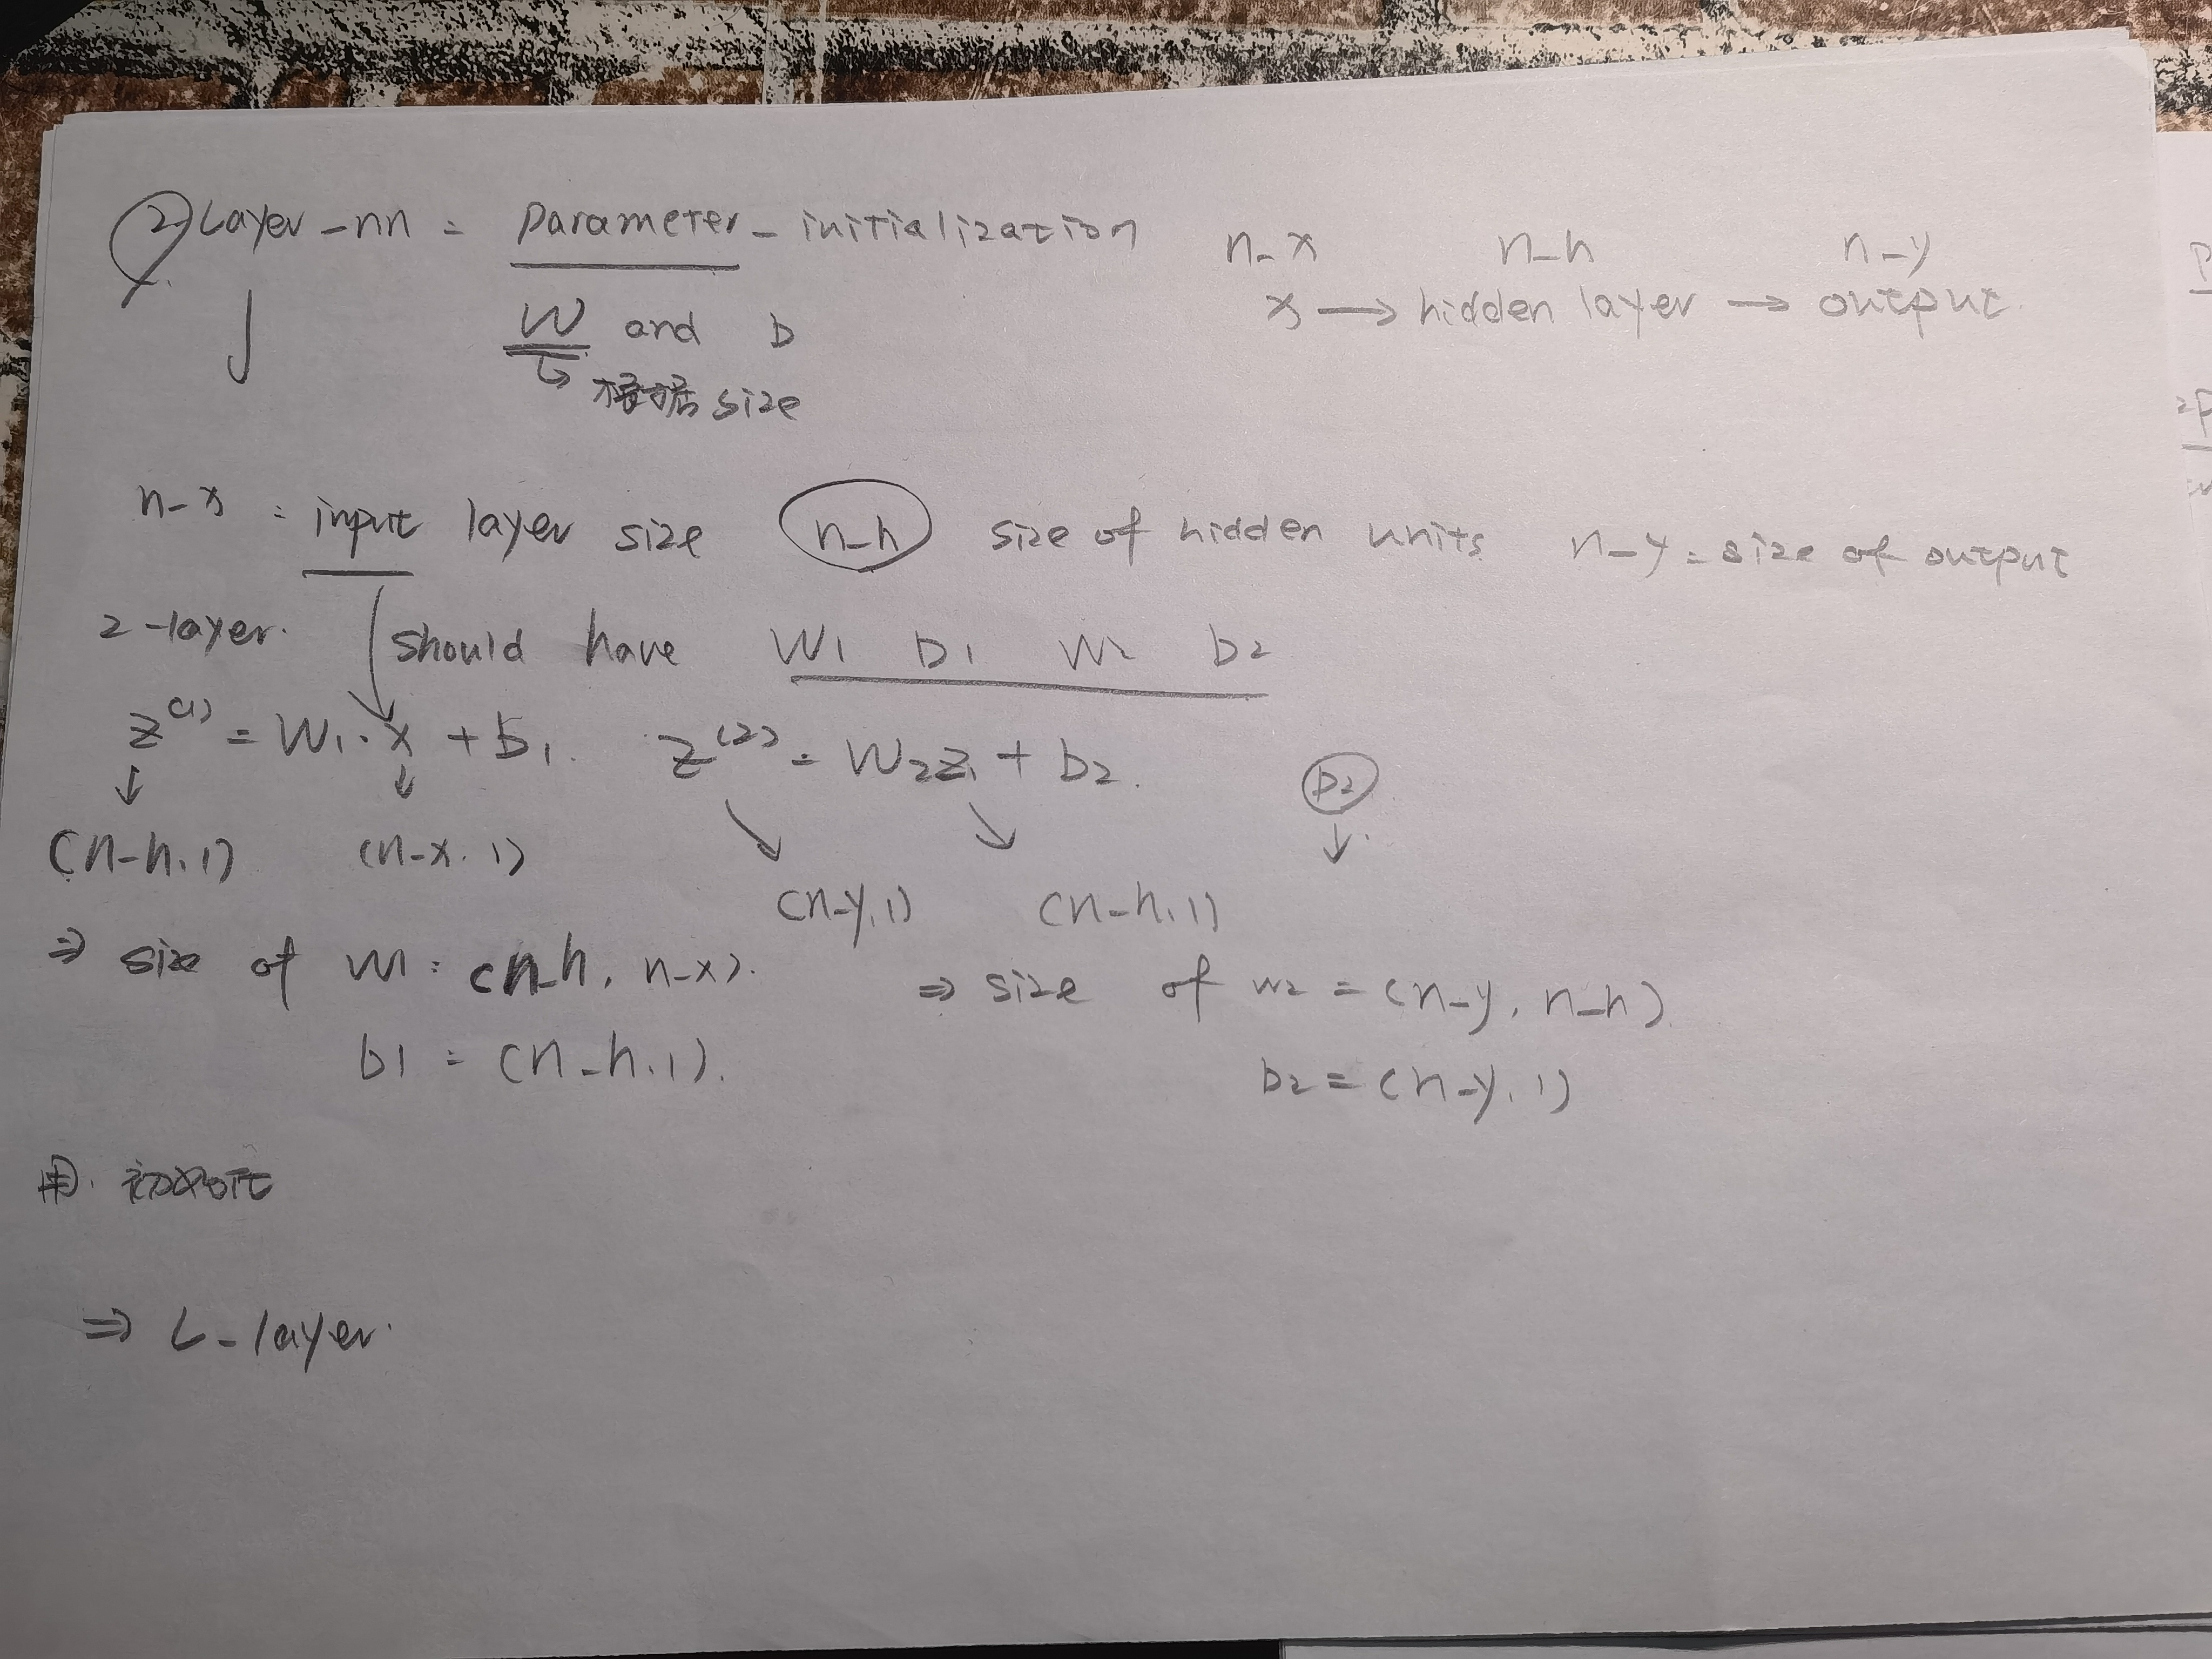 2 Layer-nn = parameter-initialization
n-x n-h n-y
x → hidden layer → output
W and b
↳ 根据 size
n-x : input layer size n-h size of hidden units n-y = size of output
2-layer. should have W1 b1 W2 b2
z⁽¹⁾ = W1·x + b1. z⁽²⁾ = W2z1 + b2. b2
(n-h, 1) (n-x, 1) (n-y, 1) (n-h, 1)
⇒ size of W1 : (n-h, n-x). ⇒ size of w2 = (n-y, n-h)
b1 = (n-h, 1). b2 = (n-y, 1)
用. 初始化
⇒ L-layer.